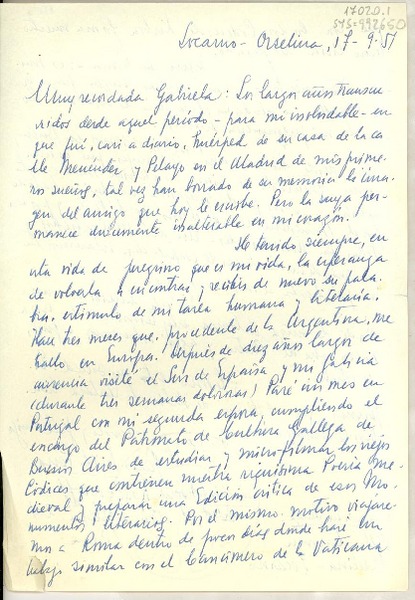 17020.1
sys=992650
Locarno - Orselina, 17-9-51
Muy recordada Gabriela: Los largos años transcu
rridos desde aquel período - para mí inolvidable - en
que fuí, casi a diario, huésped de su casa de la ca
lle Menéndez y Pelayo en el Madrid de mis prime
ros sueños, tal vez han borrado de su memoria la ima
gen del amigo que hoy le escribe. Pero la suya per
manece dulcemente inalterable en mi corazón.
He tenido siempre, en
esta vida de peregrino que es mi vida, la esperanza
de volverla a encontrar y recibir de nuevo su pala
bra, estímulo de mi tarea humana y literaria.
Hace tres meses que, procedente de la Argentina, me
hallo en Europa. Después de diez años largos de
ausencia visité el Sur de España y mi Galicia
(durante tres semanas dolorosas). Pasé un mes en
Portugal con mi segunda esposa, cumpliendo el
encargo del Patronato de Cultura Gallega de
Buenos Aires de estudiar y microfilmar los viejos
Códices que contienen nuestra riquísima Poesía me
dieval y preparar una Edición crítica de esos Mo
numentos literarios. Por el mismo motivo viajare
mos a Roma dentro de pocos días donde haré un
trabajo similar con el Cancionero de la Vaticana